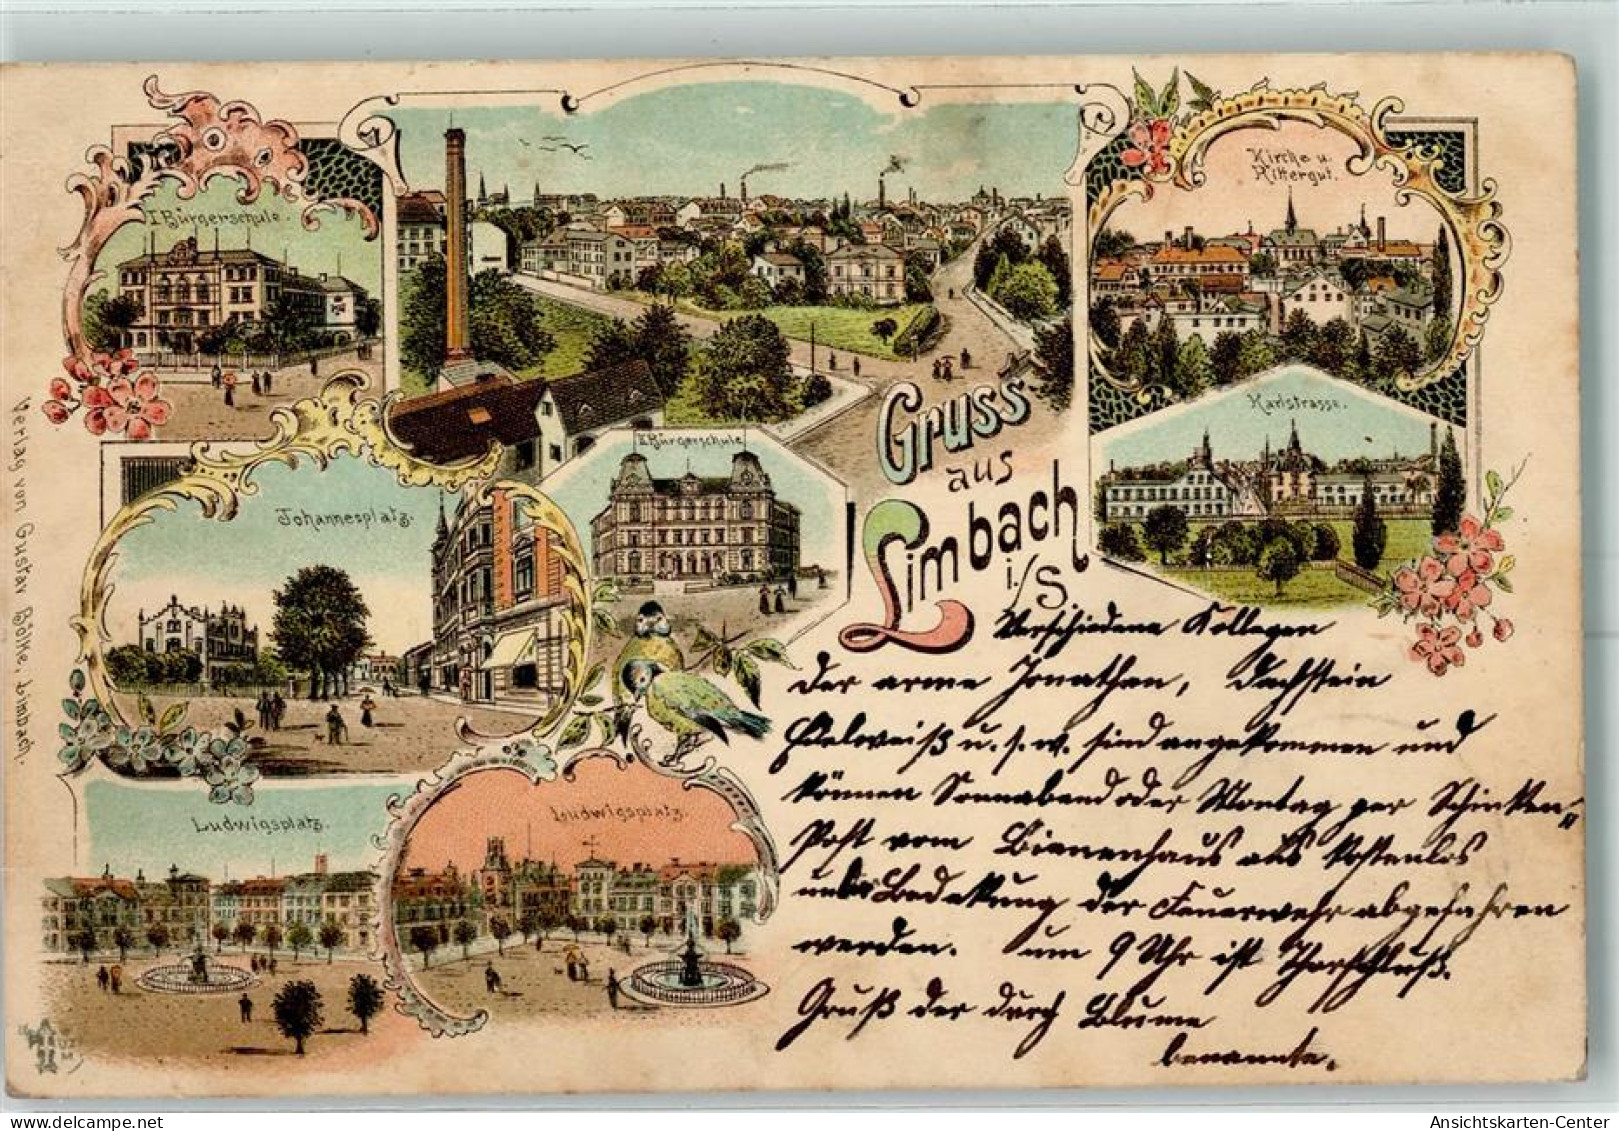 I Bürgerschule.
Kirche u.
Rittergut.
Karlstrasse.
II Bürgerschule
Gruss
aus
Limbach
i./S.
Johannesplatz.
Ludwigsplatz.
Ludwigsplatz.
Verlag von Gustav Bölke, Limbach.
Verschiedene Kollegen
der arme Jonathan, Dachstein
Edelweiß u. s. w. sind angekommen und
können Sonnabend oder Montag per Schinken-
Post vom Bienenhaus aus kostenlos
unter Bedeckung der Feuerwehr abgefahren
werden. um 9 Uhr ist Thorschluß.
Gruß der durch Blume
benannte.
Ansichtskarten-Center